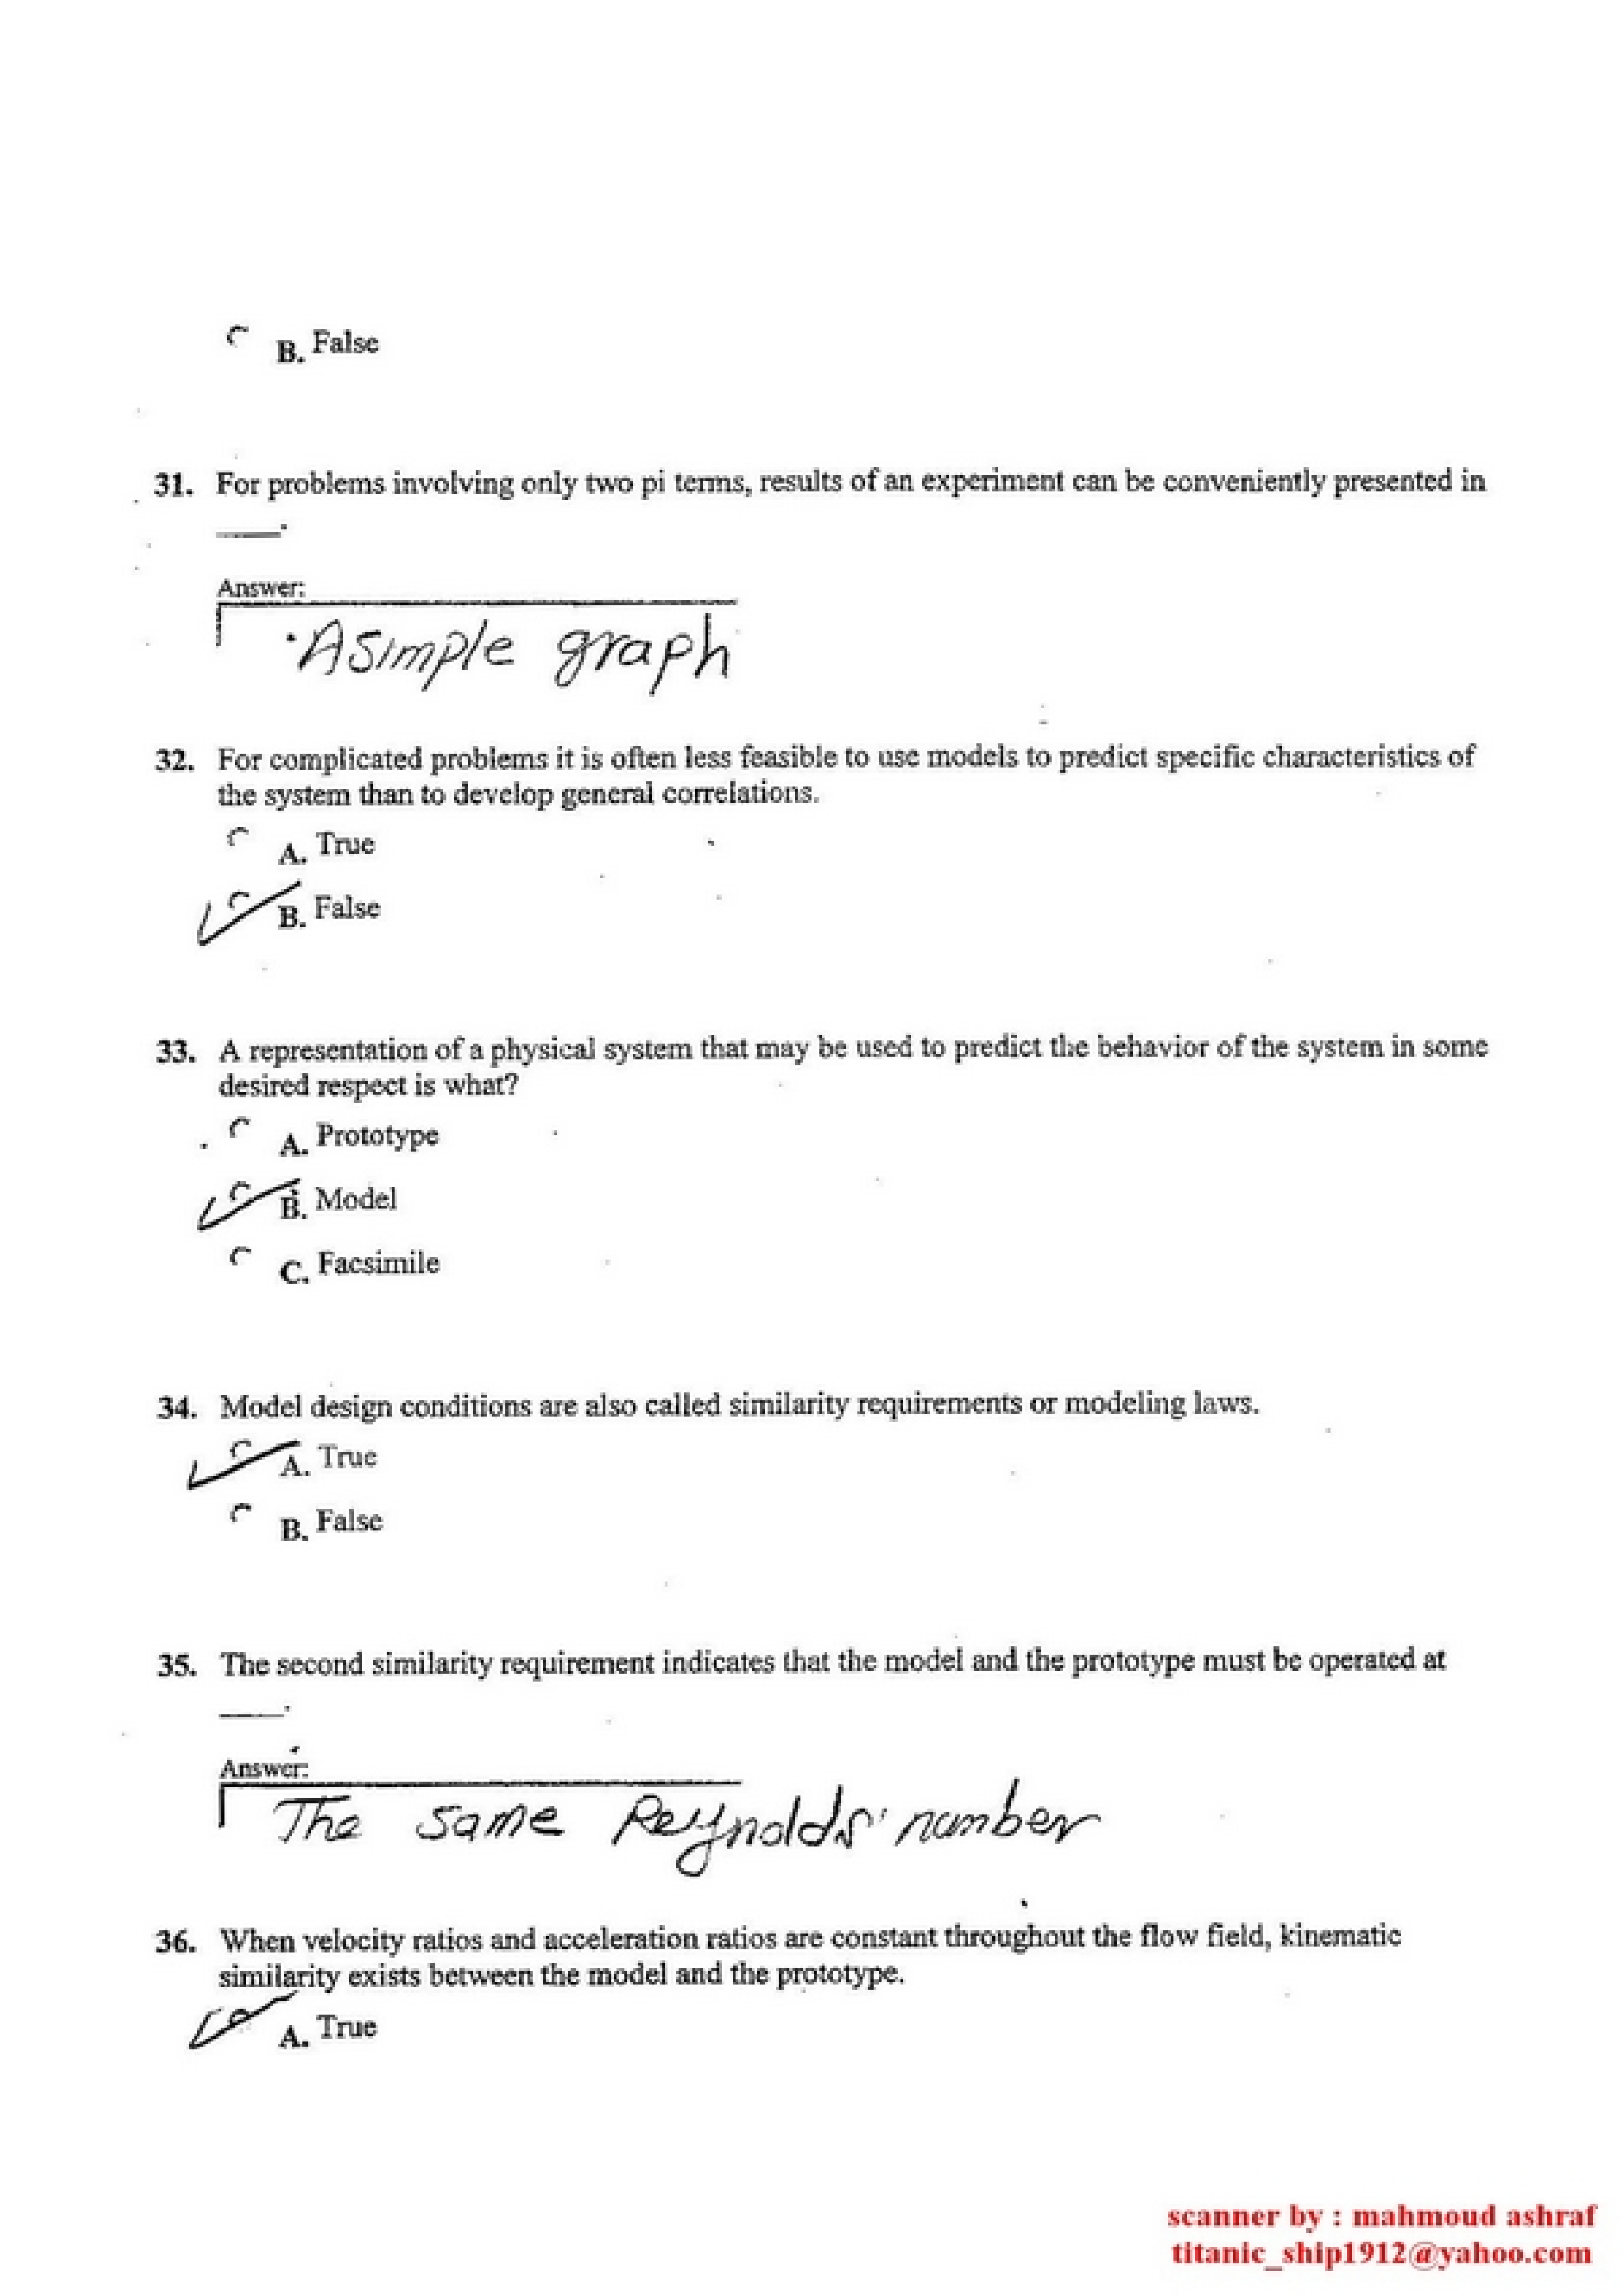 B. False
31. For problems involving only two pi terms, results of an experiment can be conveniently presented in
____.
Answer:
A simple graph
32. For complicated problems it is often less feasible to use models to predict specific characteristics of
the system than to develop general correlations.
A. True
B. False
33. A representation of a physical system that may be used to predict the behavior of the system in some
desired respect is what?
A. Prototype
B. Model
C. Facsimile
34. Model design conditions are also called similarity requirements or modeling laws.
A. True
B. False
35. The second similarity requirement indicates that the model and the prototype must be operated at
____.
Answer:
The same Reynolds' number
36. When velocity ratios and acceleration ratios are constant throughout the flow field, kinematic
similarity exists between the model and the prototype.
A. True
scanner by : mahmoud ashraf
titanic_ship1912@yahoo.com